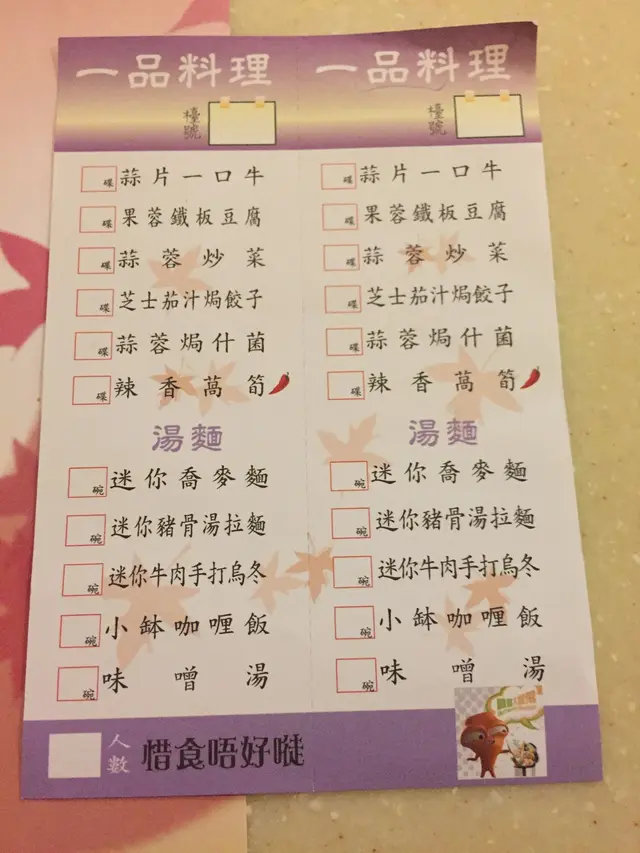 一品料理
檯號
碟 蒜片一口牛
碟 果蓉鐵板豆腐
碟 蒜蓉炒菜
碟 芝士茄汁焗餃子
碟 蒜蓉焗什菌
碟 辣香萵筍
湯麵
碗 迷你喬麥麵
碗 迷你豬骨湯拉麵
碗 迷你牛肉手打烏冬
碗 小缽咖喱飯
碗 味噌湯
人數 惜食唔好嘥
一品料理
檯號
碟 蒜片一口牛
碟 果蓉鐵板豆腐
碟 蒜蓉炒菜
碟 芝士茄汁焗餃子
碟 蒜蓉焗什菌
碟 辣香萵筍
湯麵
碗 迷你喬麥麵
碗 迷你豬骨湯拉麵
碗 迷你牛肉手打烏冬
碗 小缽咖喱飯
碗 味噌湯